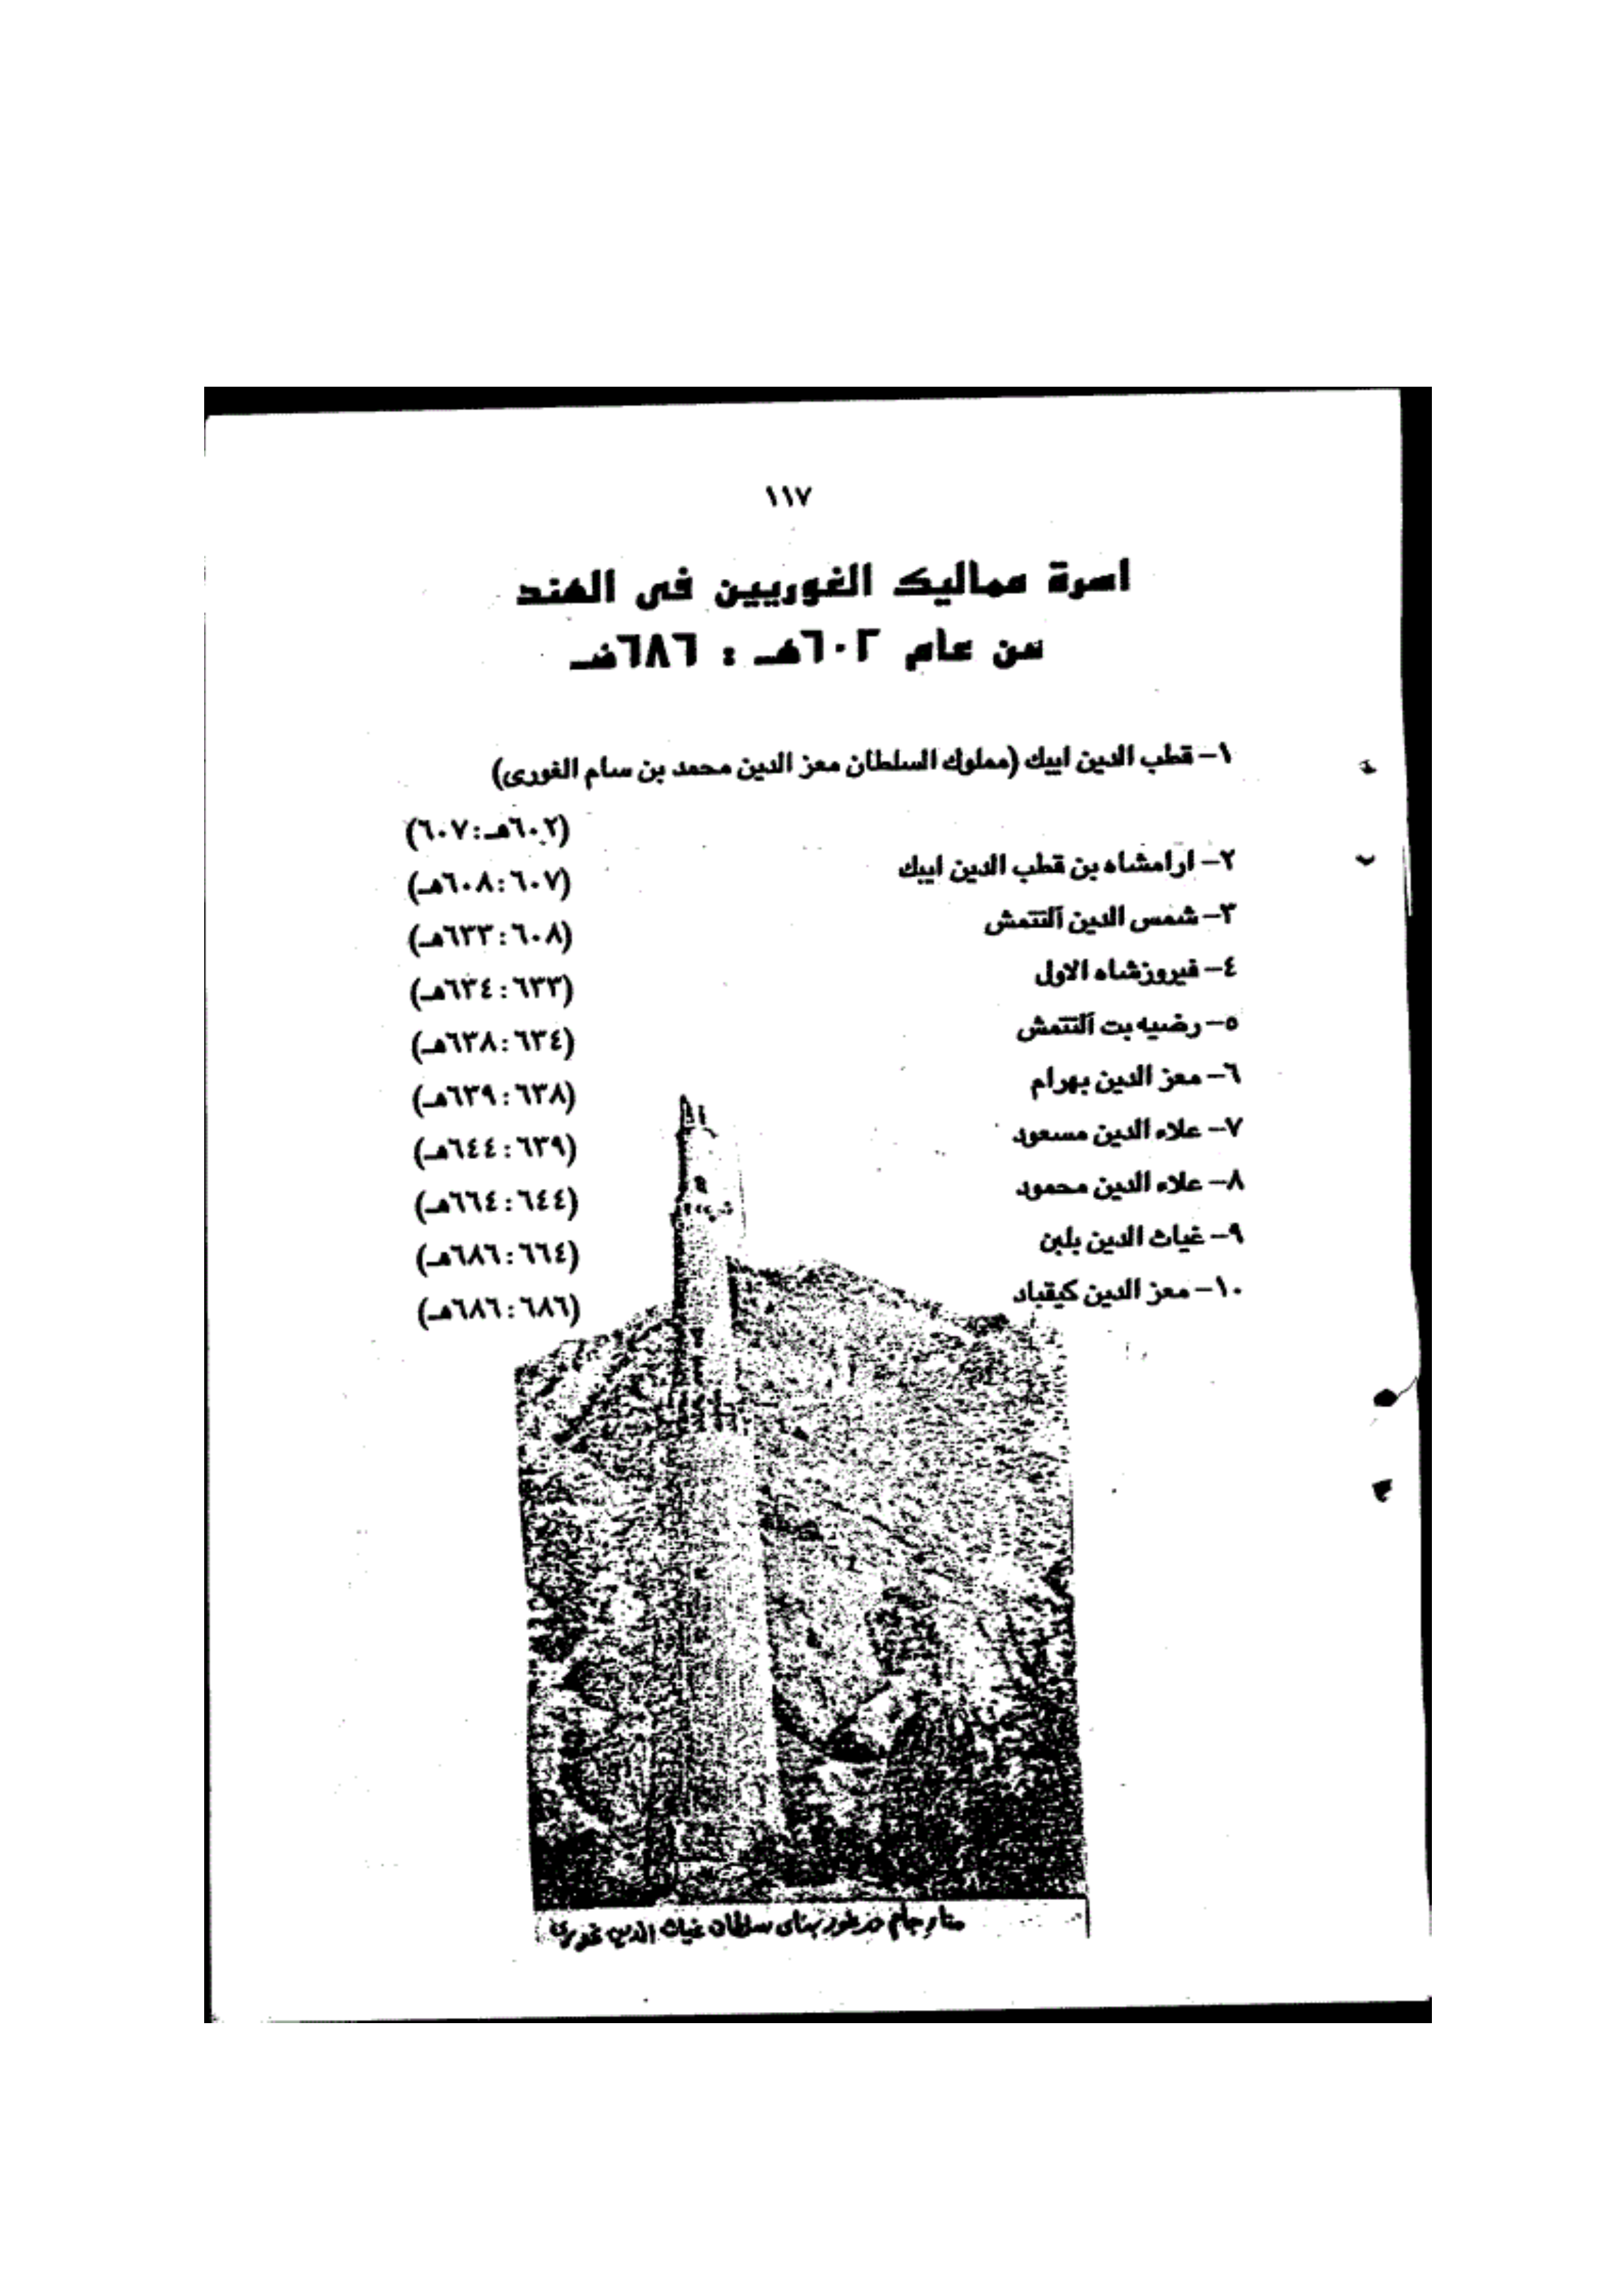 ١١٧
اسرة مماليك الغوريين فى الهند
من عام ٦٠٢هـ : ٦٨٦هـ
١– قطب الدين ايبك (مملوك السلطان معز الدين محمد بن سام الغورى)
(٦٠٢هـ:٦٠٧)
٢– ارامشاه بن قطب الدين ايبك (٦٠٧:٦٠٨هـ)
٣– شمس الدين آلتتمش (٦٠٨:٦٣٣هـ)
٤– فيروزشاه الاول (٦٣٣:٦٣٤هـ)
٥– رضيه بت آلتتمش (٦٣٤:٦٣٨هـ)
٦– معز الدين بهرام (٦٣٨:٦٣٩هـ)
٧– علاء الدين مسعود (٦٣٩:٦٤٤هـ)
٨– علاء الدين محمود (٦٤٤:٦٦٤هـ)
٩– غياث الدين بلبن (٦٦٤:٦٨٦هـ)
١٠– معز الدين كيقباد (٦٨٦:٦٨٦هـ)
منار جام بنای سلطان غياث الدين غوری